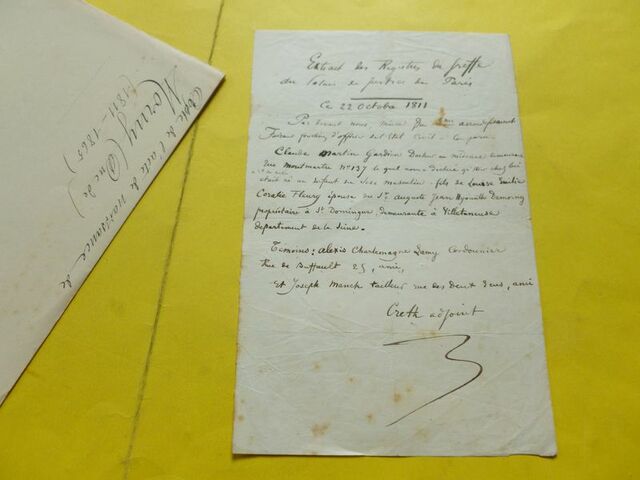 Extrait des Registres du greffe
du Palais de justice de Paris
Ce 22 octobre 1811
Par devant nous, maire du 2me arrondissement
Faisant fonction d'officier de l'Etat Civil - a comparu
Claude Martin Gardien Docteur en médecine demeurant
rue Montmartre No 137, lequel nous a déclaré qu'hier chez lui
était né un enfant du sexe masculin, fils de Louise Emilie
Coralie Fleury épouse du Sr. Auguste Jean Hyacinthe Demorny
propriétaire à St Domingue, demeurante à Villetaneuse
département de la Seine.
Temoins: Alexis Charlemagne Lamy Cordonnier
Rue de Buffault 25, ami,
Et Joseph Manch tailleur rue des Deux Ecus, ami
Creth adjoint
Copie de l'acte de naissance de
Morny (Duc de)
(1811-1865)